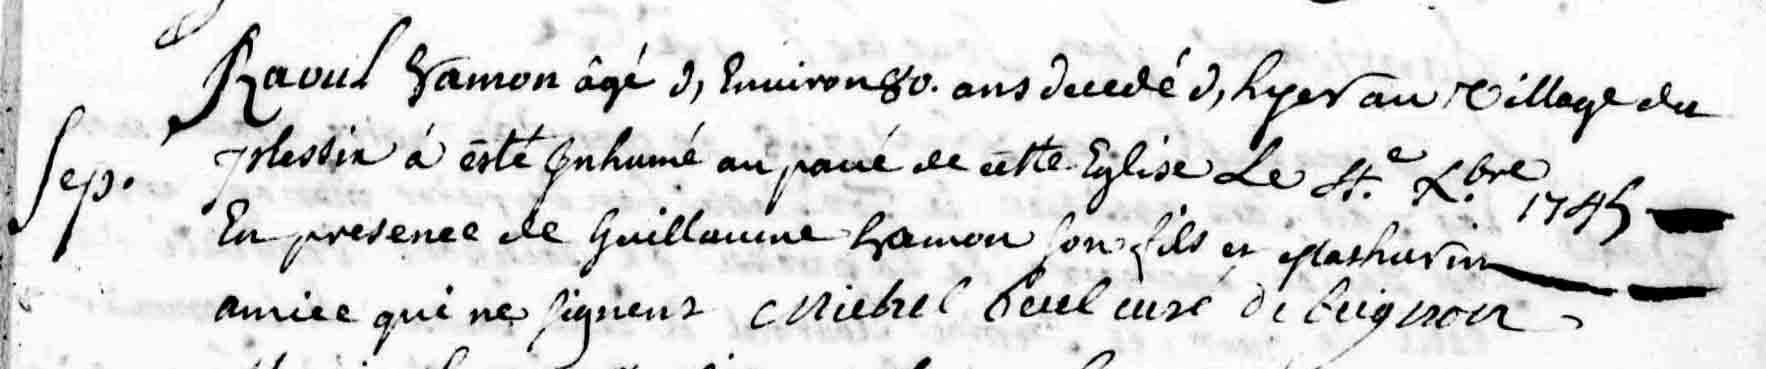 Raoul hamon âgé d, Environ 80. ans decedé d, hyer au Village du
Sep. plessix à esté Inhumé au pavé de cette Eglise Le 4.e X.bre 1745
En presence de Guillaume hamon son fils et Mathurin
amice qui ne signent Michel curé de beignon